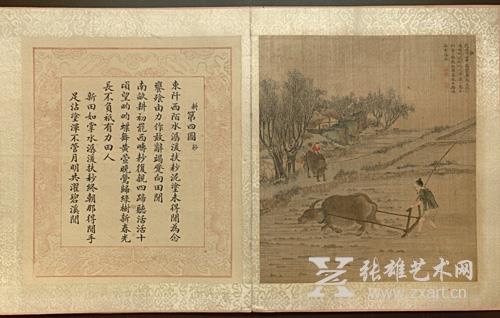 耕
第四圖 耖
東阡西陌水潺湲扶耖泥塗未得閒為念
饔飧由力作敢辭竭蹶向田間
南畝耕初罷西疇耖復親四蹄聽活活十
頃望畇畇蝶舞黃萱晚鶯歸綠樹新春光
長不負祇有力田人
新田如掌水潺湲扶耖終朝那得閒手
足沾塗渾不管月明共濯碧溪間
张雄艺术网
www.zxart.cn